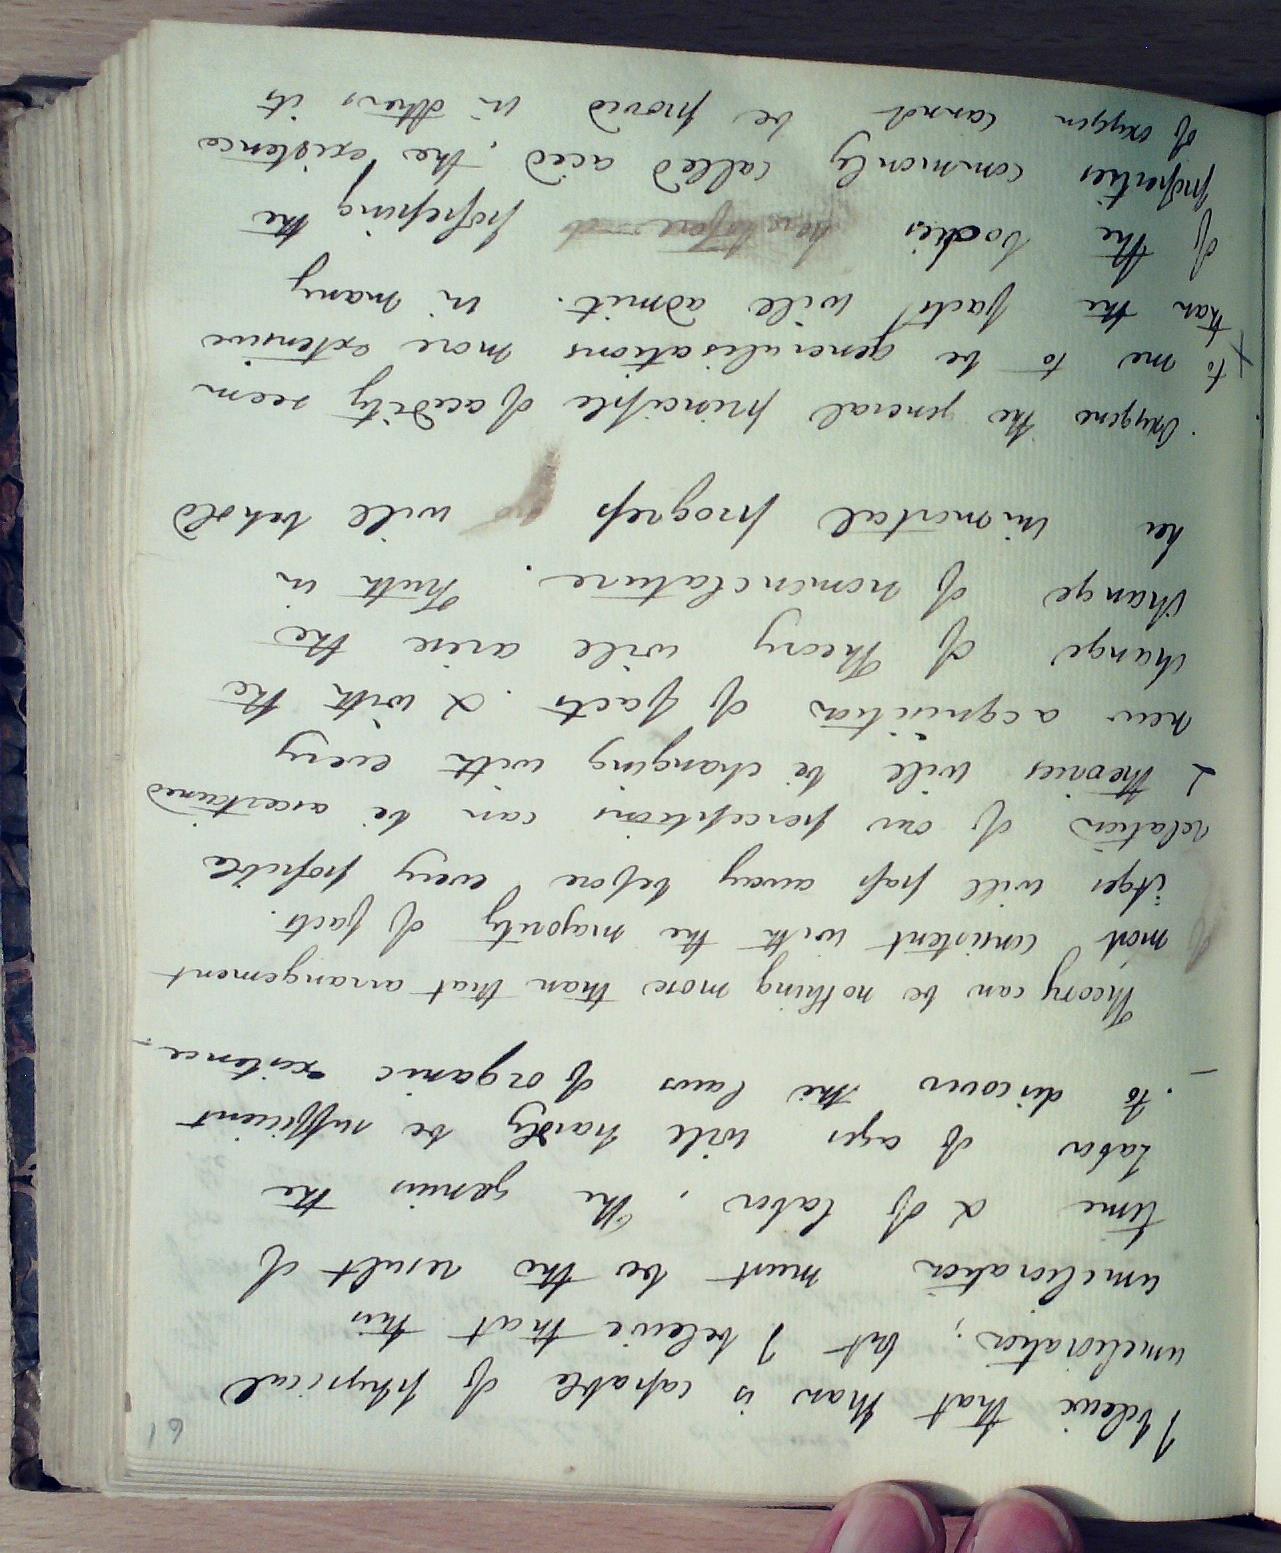 61
I beleive that Man is capable of physical
amelioration; but I beleive that this
amelioration must be the result of
time & of labor, The genius the
Labor of ages will hardly be sufficient
to discover the laws of organic existence –
Theory can be nothing more than that arrangement
most consistent with the majority of facts.
Ages will pass away before every possible
relation of our perceptions can be ascertained
& theories will be changing with every
new acquisition of facts & with the
change of Theory will arise the
change of nomenclature. Truth in
her immortal progress will behold
Oxygene the general principle of acidity seem
to me to be generalisations more extensive
than the facts will admit. in many
of the bodies heretofore possessing the
properties commonly called acid, the existence
of oxygen cannot be proved in others its